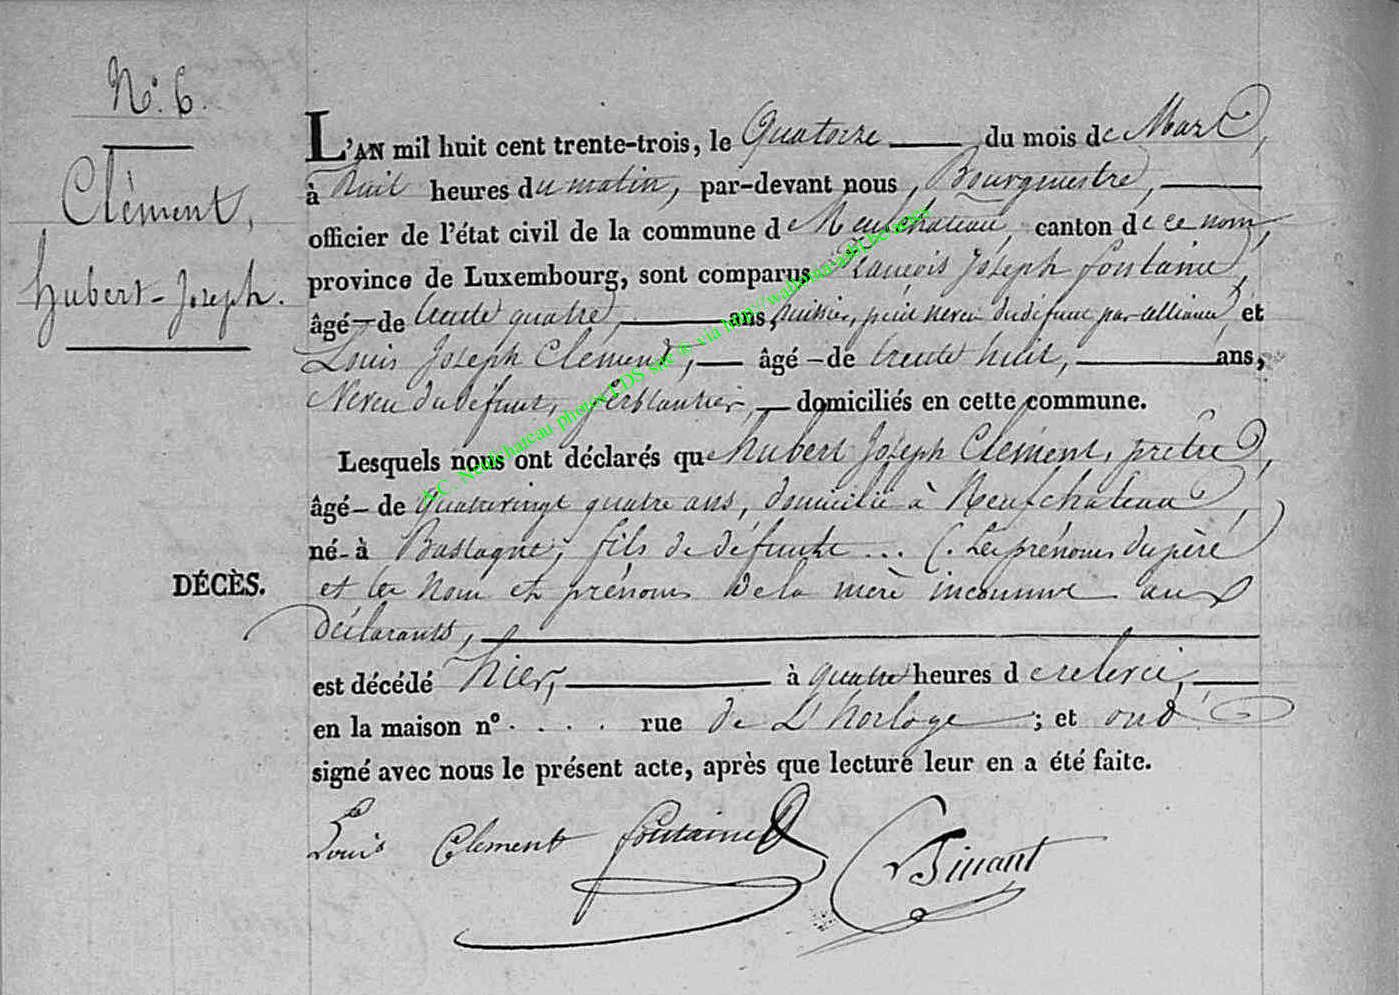 N° 6.
Clément,
hubert-Joseph.
DÉCÈS.
L'AN mil huit cent trente-trois, le Quatorze du mois de Mars,
à huit heures du matin, par-devant nous, Bourgmestre,
officier de l'état civil de la commune de Neufchateau, canton de ce nom,
province de Luxembourg, sont comparus francois Joseph fontaine,
âgé-de trente quatre, ans, huissier, petit neveu du défunt par alliance, et
Louis Joseph Clément, âgé-de trente huit, ans,
Neveu du défunt, ferblantier, domiciliés en cette commune.
Lesquels nous ont déclarés que hubert Joseph Clément, prêtre,
âgé-de Quatrevingt quatre ans, domicilié à Neufchateau,
né-à Bastogne, fils de défunts ... (. Les prénoms du père
et les nom et prénoms de la mère inconnus aux
déclarants,
est décédé hier, à quatre heures de relevée,
en la maison n° . . . . rue de L'horloge ; et ont
signé avec nous le présent acte, après que lecture leur en a été faite.
Louis Clement fontaine Binant
A.C. Neufchateau photos LDS site le via http://wallonia-asbl.be/ages